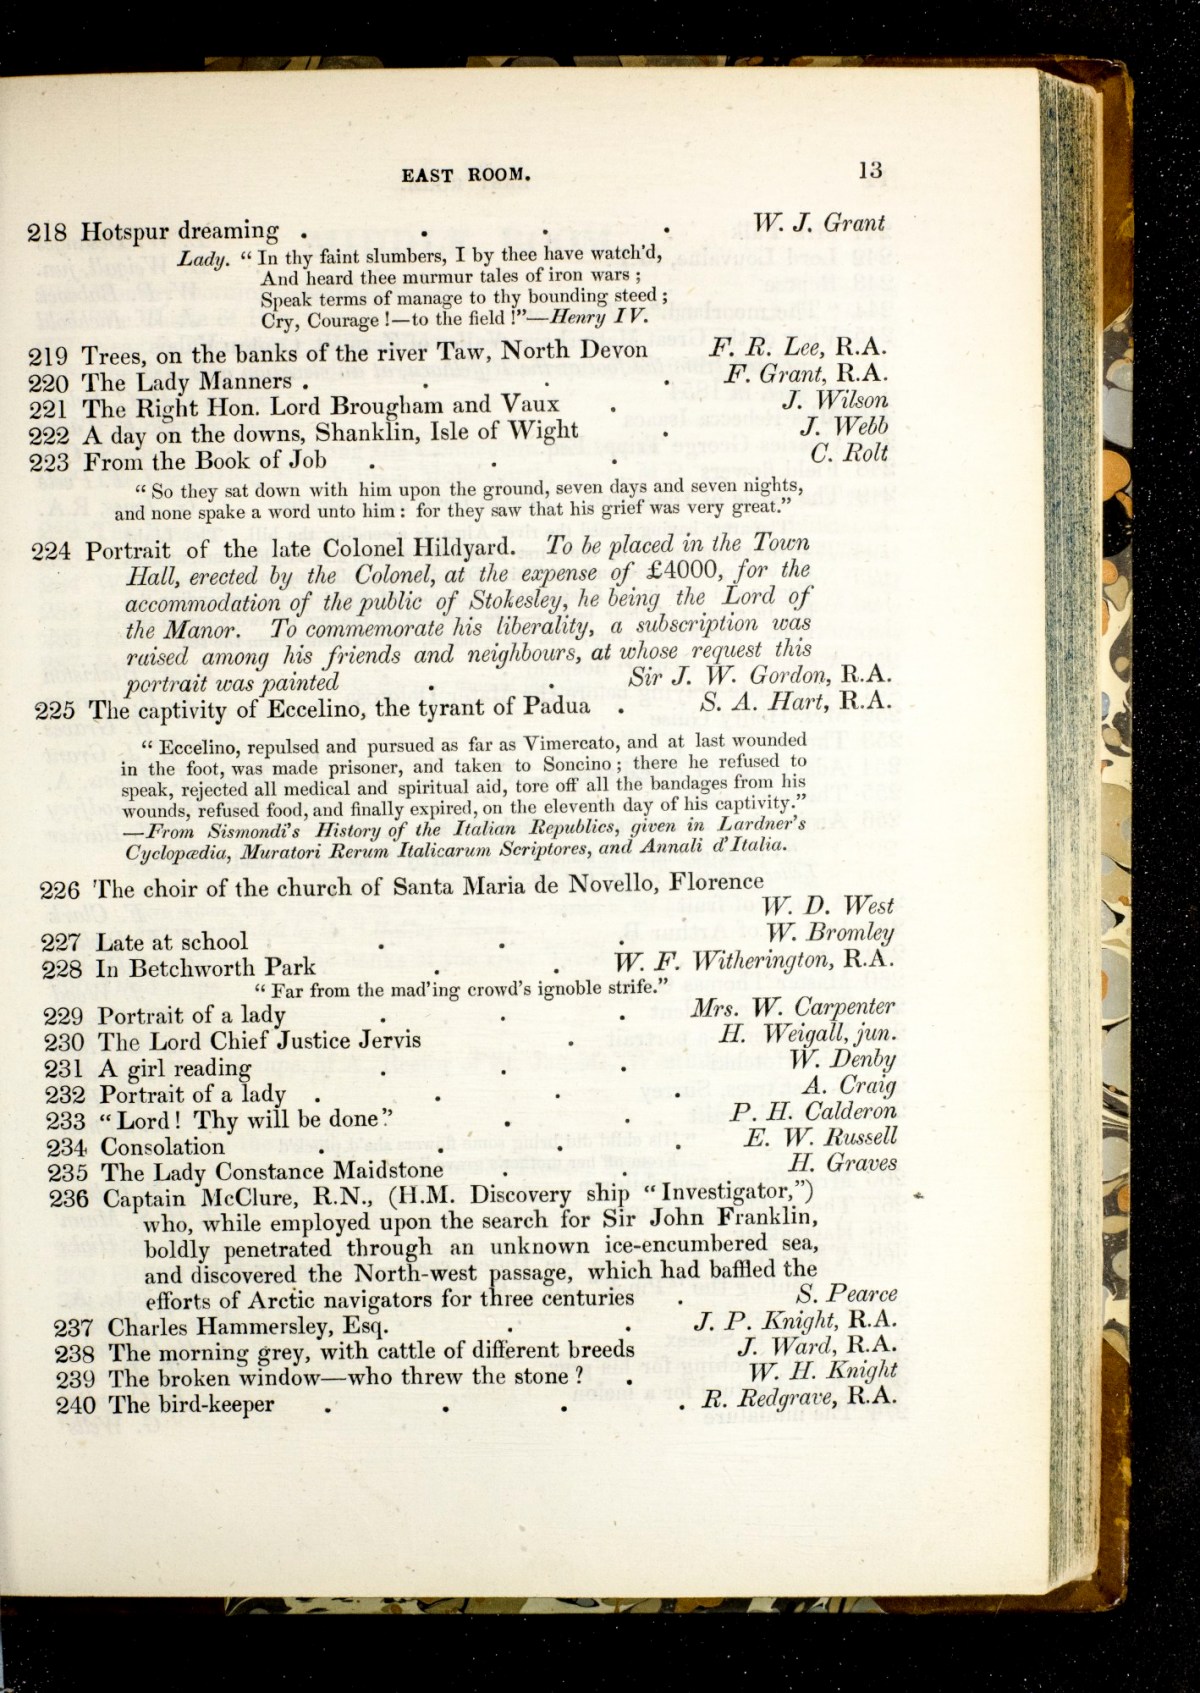 EAST ROOM. 13
218 Hotspur dreaming . . . . W. J. Grant
Lady. “ In thy faint slumbers, I by thee have watch’d,
And heard thee murmur tales of iron wars ;
Speak terms of manage to thy bounding steed ;
Cry, Courage !—to the field !”—Henry IV.
219 Trees, on the banks of the river Taw, North Devon F. R. Lee, R.A.
220 The Lady Manners . . . . F. Grant, R.A.
221 The Right Hon. Lord Brougham and Vaux . J. Wilson
222 A day on the downs, Shanklin, Isle of Wight . J. Webb
223 From the Book of Job . . . C. Rolt
“ So they sat down with him upon the ground, seven days and seven nights,
and none spake a word unto him : for they saw that his grief was very great.”
224 Portrait of the late Colonel Hildyard. To be placed in the Town
Hall, erected by the Colonel, at the expense of £4000, for the
accommodation of the public of Stokesley, he being the Lord of
the Manor. To commemorate his liberality, a subscription was
raised among his friends and neighbours, at whose request this
portrait was painted . . Sir J. W. Gordon, R.A.
225 The captivity of Eccelino, the tyrant of Padua . S. A. Hart, R.A.
“ Eccelino, repulsed and pursued as far as Vimercato, and at last wounded
in the foot, was made prisoner, and taken to Soncino ; there he refused to
speak, rejected all medical and spiritual aid, tore off all the bandages from his
wounds, refused food, and finally expired, on the eleventh day of his captivity.”
—From Sismondi’s History of the Italian Republics, given in Lardner’s
Cyclopædia, Muratori Rerum Italicarum Scriptores, and Annali d’Italia.
226 The choir of the church of Santa Maria de Novello, Florence
W. D. West
227 Late at school . . . W. Bromley
228 In Betchworth Park . . W. F. Witherington, R.A.
“ Far from the mad’ing crowd’s ignoble strife.”
229 Portrait of a lady . . . Mrs. W. Carpenter
230 The Lord Chief Justice Jervis . H. Weigall, jun.
231 A girl reading . . . W. Denby
232 Portrait of a lady . . . . A. Craig
233 “ Lord ! Thy will be done” . . . P. H. Calderon
234 Consolation . . . . E. W. Russell
235 The Lady Constance Maidstone . . H. Graves
236 Captain McClure, R.N., (H.M. Discovery ship “ Investigator,”)
who, while employed upon the search for Sir John Franklin,
boldly penetrated through an unknown ice-encumbered sea,
and discovered the North-west passage, which had baffled the
efforts of Arctic navigators for three centuries . S. Pearce
237 Charles Hammersley, Esq. . . J. P. Knight, R.A.
238 The morning grey, with cattle of different breeds J. Ward, R.A.
239 The broken window—who threw the stone ? . W. H. Knight
240 The bird-keeper . . . . R. Redgrave, R.A.